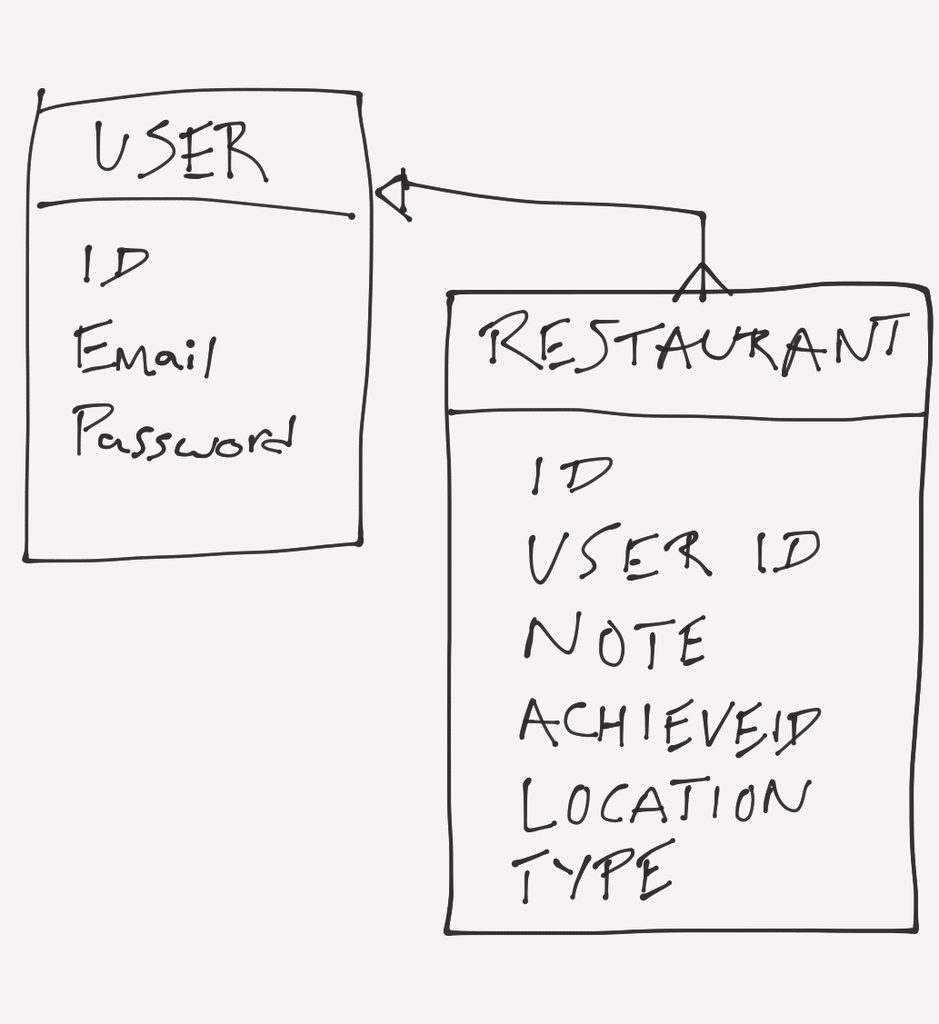 USER
ID
Email
Password
RESTAURANT
ID
USER ID
NOTE
ACHIEVEID
LOCATION
TYPE